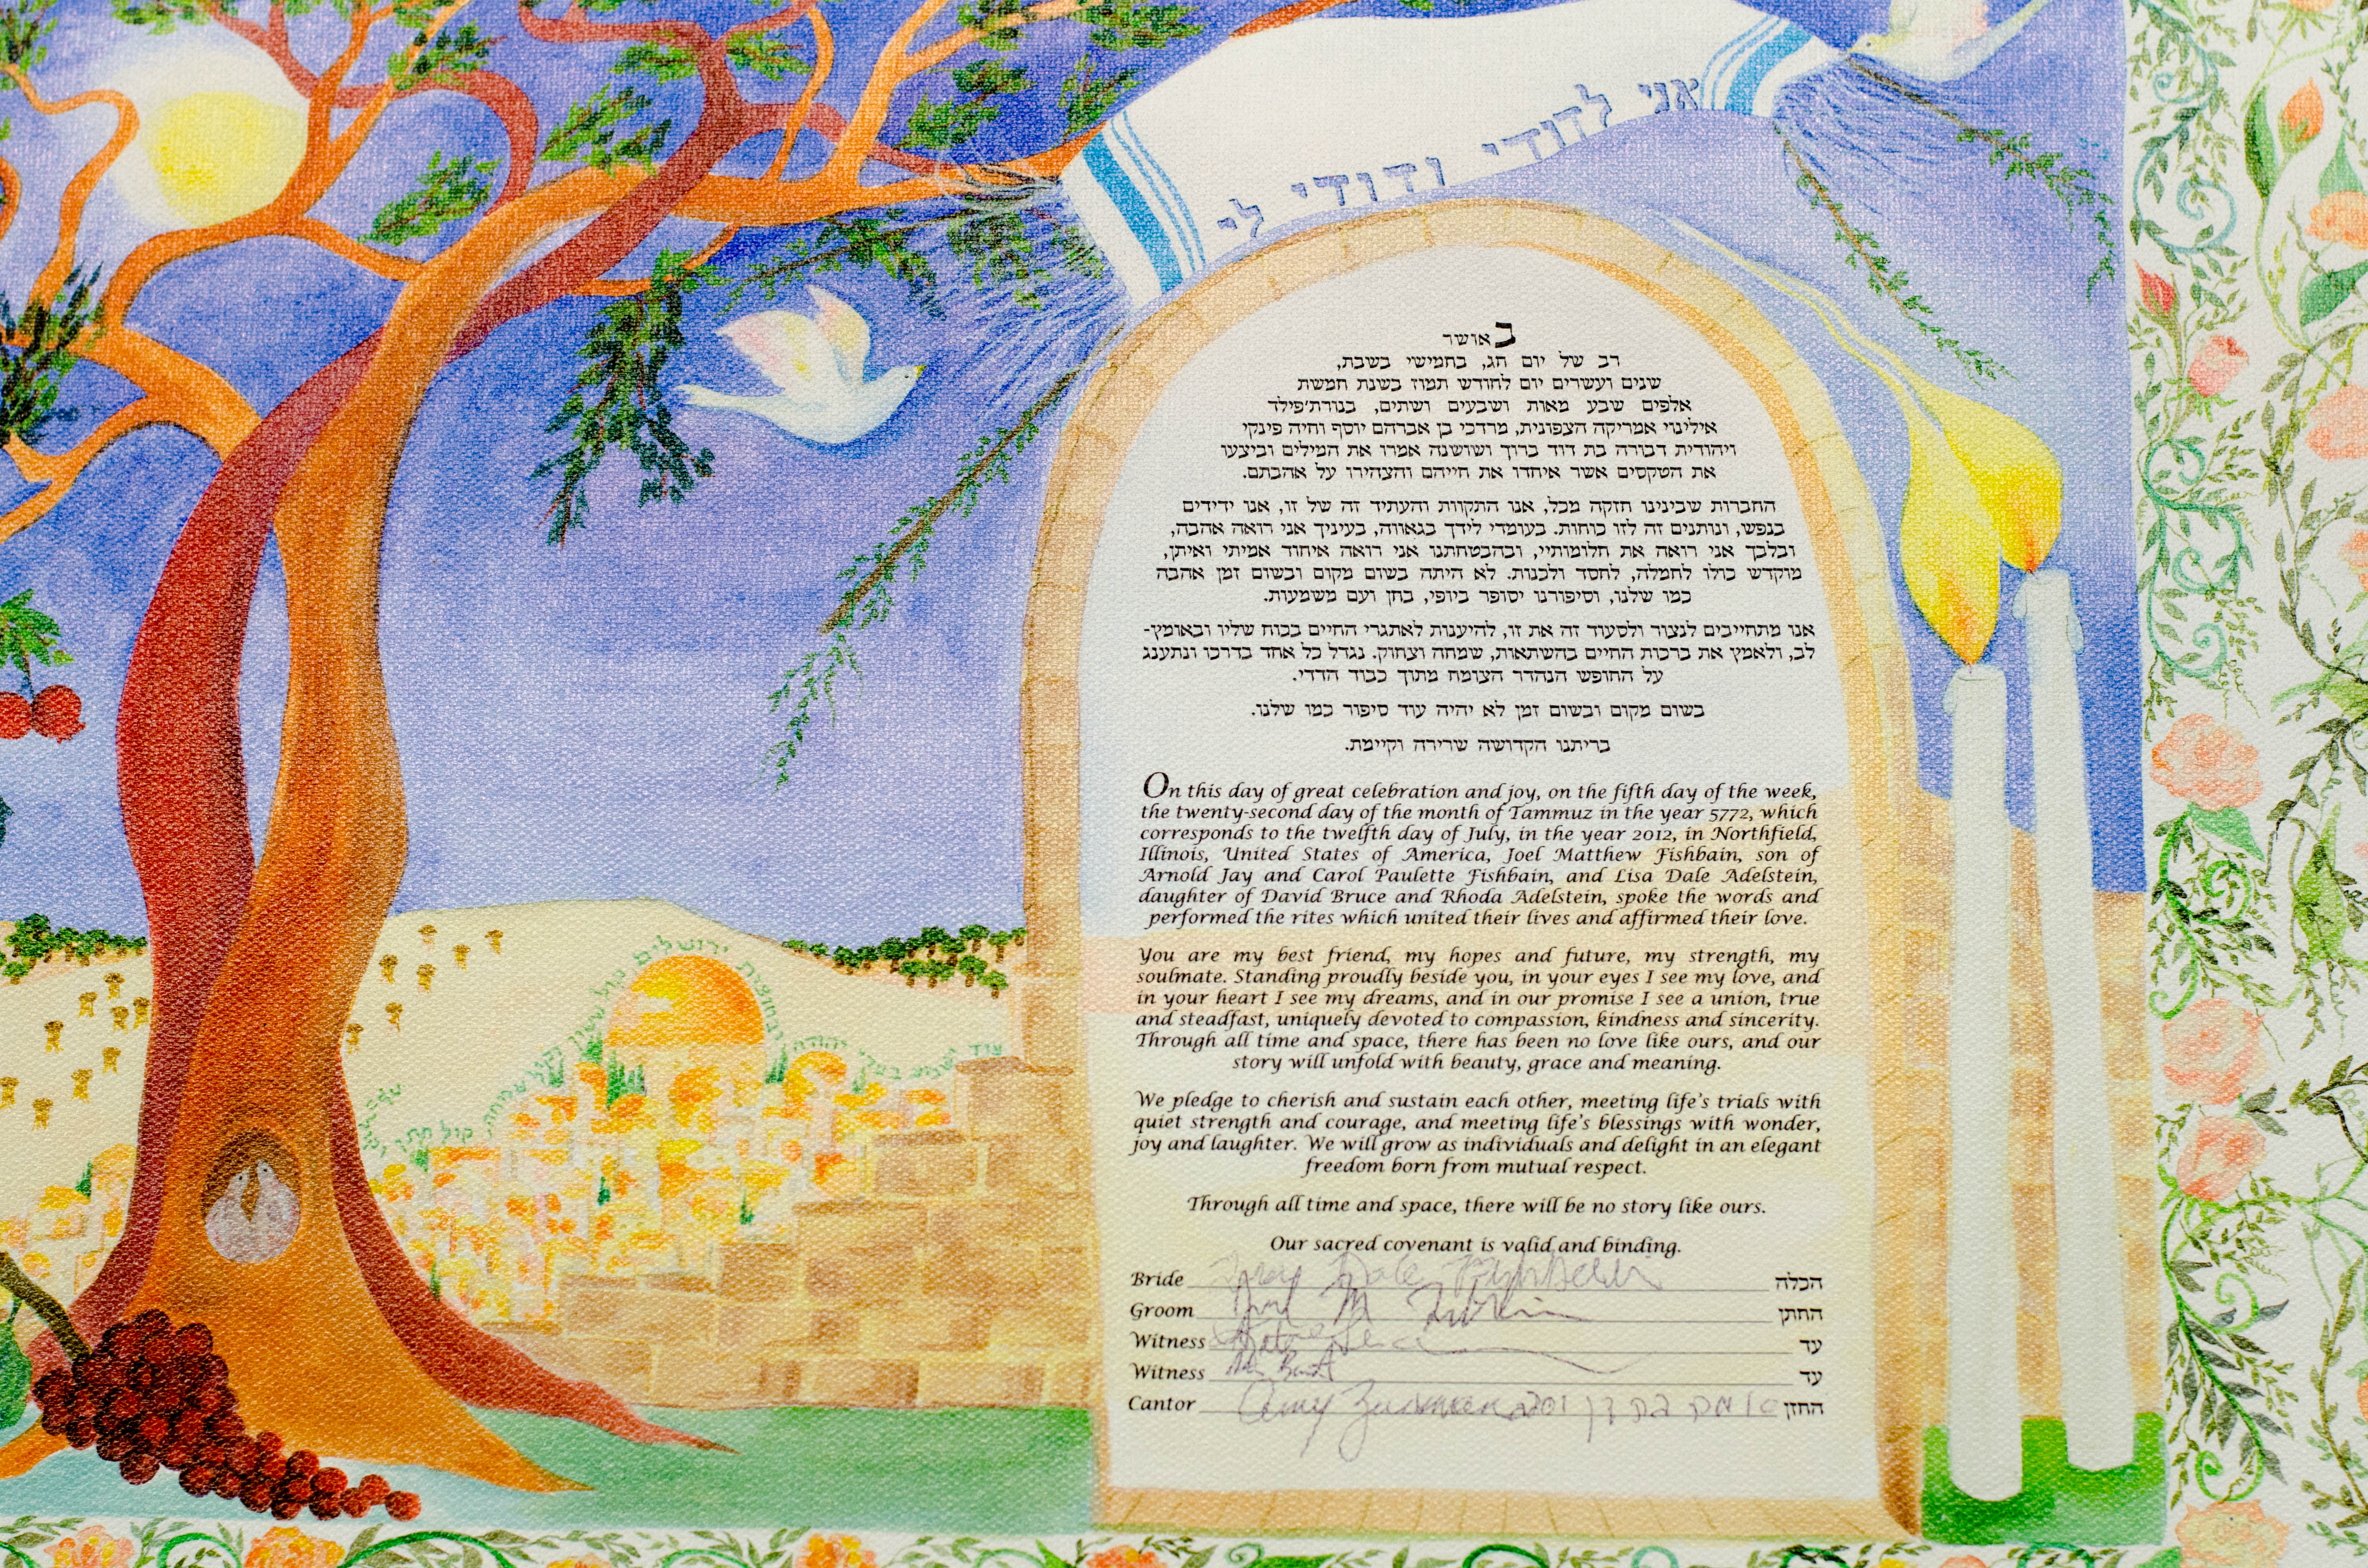 אני לדודי ודודי לי
באושר
רב של יום חג, בחמישי בשבת,
שנים ועשרים יום לחודש תמוז בשנת חמשת
אלפים שבע מאות ושבעים ושתים, בנורת'פילד
אילינוי אמריקה הצפונית, מרדכי בן אברהם יוסף וחיה פינקי
ויהודית דבורה בת דוד ברוך ושושנה אמרו את המילים וביצעו
את הטקסים אשר איחדו את חייהם והצהירו על אהבתם.
החברות שבינינו חזקה מכל, אנו התקוות והעתיד זה של זו, אנו ידידים
בנפש, ונותנים זה לזו כוחות. בעומדי לידך בגאווה, בעיניך אני רואה אהבה,
ובלבך אני רואה את חלומותיי, ובהבטחתנו אני רואה איחוד אמיתי ואיתן,
מוקדש כולו לחמלה, לחסד ולכנות. לא היתה בשום מקום ובשום זמן אהבה
כמו שלנו, וסיפורנו יסופר ביופי, בחן ועם משמעות.
אנו מתחייבים לנצור ולסעוד זה את זו, להיענות לאתגרי החיים בכוח שליו ובאומץ-
לב, ולאמץ את ברכות החיים בהשתאות, שמחה וצחוק. נגדל כל אחד בדרכו ונתענג
על החופש הנהדר הצומח מתוך כבוד הדדי.
בשום מקום ובשום זמן לא יהיה עוד סיפור כמו שלנו.
בריתנו הקדושה שרירה וקיימת.
On this day of great celebration and joy, on the fifth day of the week,
the twenty-second day of the month of Tammuz in the year 5772, which
corresponds to the twelfth day of July, in the year 2012, in Northfield,
Illinois, United States of America, Joel Matthew Fishbain, son of
Arnold Jay and Carol Paulette Fishbain, and Lisa Dale Adelstein,
daughter of David Bruce and Rhoda Adelstein, spoke the words and
performed the rites which united their lives and affirmed their love.
You are my best friend, my hopes and future, my strength, my
soulmate. Standing proudly beside you, in your eyes I see my love, and
in your heart I see my dreams, and in our promise I see a union, true
and steadfast, uniquely devoted to compassion, kindness and sincerity.
Through all time and space, there has been no love like ours, and our
story will unfold with beauty, grace and meaning.
We pledge to cherish and sustain each other, meeting life's trials with
quiet strength and courage, and meeting life's blessings with wonder,
joy and laughter. We will grow as individuals and delight in an elegant
freedom born from mutual respect.
Through all time and space, there will be no story like ours.
Our sacred covenant is valid and binding.
Bride Dale הכלה
Groom M החתן
Witness עד
Witness עד
Cantor Amy החזן
עוד ישמע בערי יהודה ובחוצות ירושלים קול ששון וקול שמחה, קול חתן